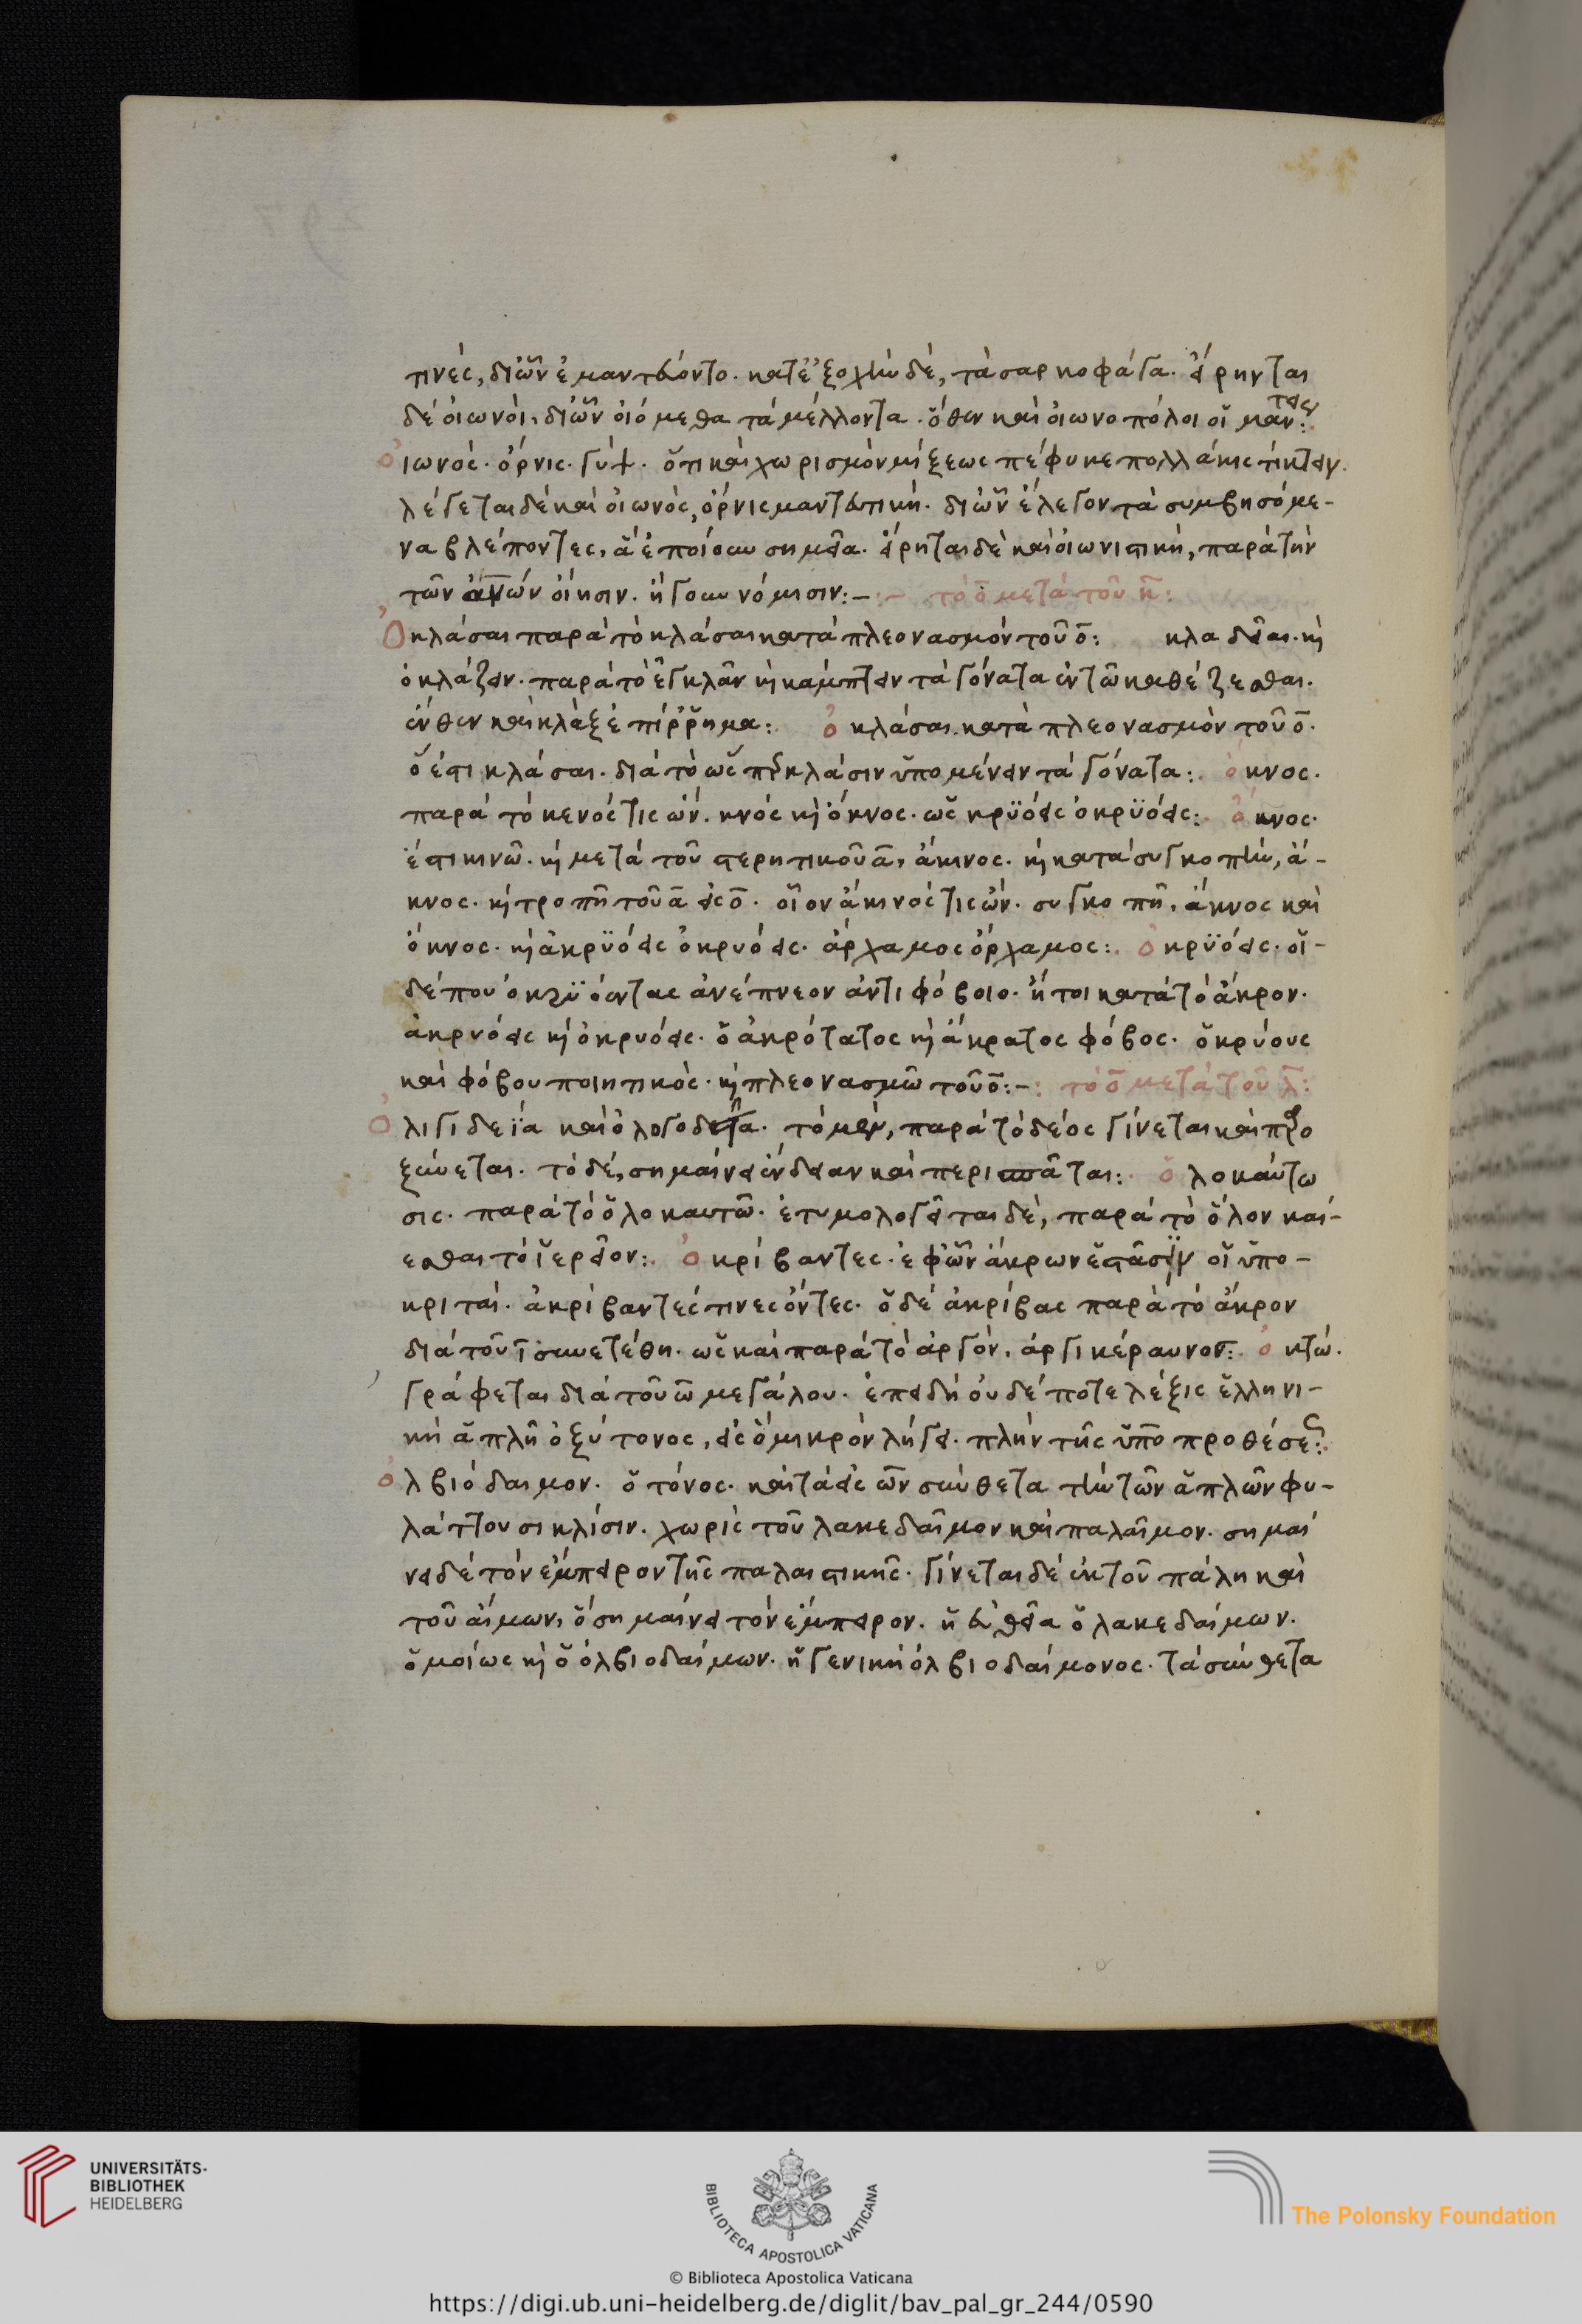 τινές, δι' ὧν ἐμαντεύοντο. κατ' ἐξοχὴν δέ, τὰ σαρκοφάγα. εἴρηνται
δὲ οἰωνοὶ, δι' ὧν οἰόμεθα τὰ μέλλοντα. ὅθεν καὶ οἰωνοπόλοι οἱ μάντεις:
οἰωνός. ὄρνις. γύψ. ὅτι καὶ χωρισμὸν μίξεως πέφυκε πολλάκις τίκτειν.
λέγεται δὲ καὶ οἰωνὸς, ὄρνις μαντευτική. δι' ὧν ἔλεγον τὰ συμβησόμε-
να βλέποντες, ἃ ἐποίουν σημεῖα. εἴρηται δὲ καὶ οἰωνιστική, παρὰ τὴν
τῶν ἀνῶν οἴησιν. ἤγουν νόμισιν:- :- τὸ ο μετὰ τοῦ κ:
Ὀκλάσαι παρὰ τὸ κλάσαι κατὰ πλεονασμὸν τοῦ ο: κλαδεῖαι. κὶ
ὀκλάζειν. παρὰ τὸ ἐγκλᾶν κὶ κάμπτειν τὰ γόνατα ἐν τῶ καθέζεσθαι.
ἔνθεν καὶ κλὰξ ἐπίρρημα: ὀκλάσαι. κατὰ πλεονασμὸν τοῦ ο.
ὅ ἐστι κλάσαι. διὰ τὸ ὡς κλάσιν ὑπομένειν τὰ γόνατα: ὄκνος.
παρὰ τὸ κενός τις ὤν. κνός κὶ ὄκνος. ὡς κρϋόεις ὀκρϋόεις: ὄκνος.
ἔστι κινῶ. κὶ μετὰ τοῦ στερητικοῦ α, ἄκινος. κὶ κατὰ συγκοπὴν, ἄ-
κνος. κὶ τροπῆ τοῦ α εἰς ο. οἷον ἀκινός τις ὤν. συγκοπῆ, ἄκνος καὶ
ὄκνος. κὶ ἀκρϋόεις ὀκρυόεις. ἄρχαμος ὄρχαμος: ὀκρϋόεις. οἱ-
δέ που ὀκρϋόεντας ἀνέπνεον ἀντὶ φόβοιο. ἤτοι κατὰ τὸ ἄκρον.
ἀκρυόεις κὶ ὀκρυόεις. ὁ ἀκρότατος κὶ ἄκρατος φόβος. ὁ κρύους
καὶ φόβου ποιητικός. κὶ πλεονασμῶ τοῦ ο:-: τὸ ο μετὰ τοῦ λ:
Ὀλιγιδεΐα καὶ ὀλογοδεῖα. τὸ μὲν, παρὰ τὸ δέος γίνεται καὶ προ
ξύνεται. τὸ δέ, σημαίνει ἔνδειαν καὶ περισπᾶται: ὁλοκαύτω
σις. παρὰ τὸ ὁλοκαυτῶ. ἐτυμολογεῖται δὲ, παρὰ τὸ ὅλον καί-
εσθαι τὸ ἱερεῖον: Ὀκρίβαντες. ἐφ' ὧν ἄκρων ἑστᾶσιν οἱ ὑπο-
κριταί. ἀκρίβαντές τινες ὄντες. ὁ δὲ ἀκρίβας παρὰ τὸ ἄκρον
διὰ τοῦ ι συνετέθη. ὡς καὶ παρὰ τὸ ἀργόν, ἀργικέραυνος: ὀκτώ.
γράφεται διὰ τοῦ ω μεγάλου. ἐπειδὴ οὐδέποτε λέξις ἑλληνι-
κὴ ἁπλῆ ὀξύτονος, εἰς ο μικρὸν λήγει. πλὴν τῆς ὑπο προθέσεως:
ὀλβιόδαιμον. ὁ τόνος. καὶ τὰ εἰς ων σύνθετα τὴν τῶν ἁπλῶν φυ-
λάττουσι κλίσιν. χωρὶς τοῦ λακεδαῖμον καὶ παλαῖμον. σημαί
νει δὲ τὸν ἔμπειρον τῆς παλαιστικῆς. γίνεται δὲ ἐκ τοῦ πάλη καὶ
τοῦ αἵμων, ὃ σημαίνει τὸν ἔμπειρον. ἡ εὐθεῖα ὁ λακεδαίμων.
ὁμοίως κὶ ὁ ὀλβιοδαίμων. ἡ γενικὴ ὀλβιοδαίμονος. τὰ σύνθετα
UNIVERSITÄTS-
BIBLIOTHEK
HEIDELBERG
BIBLIOTECA APOSTOLICA VATICANA
The Polonsky Foundation
© Biblioteca Apostolica Vaticana
https://digi.ub.uni-heidelberg.de/diglit/bav_pal_gr_244/0590